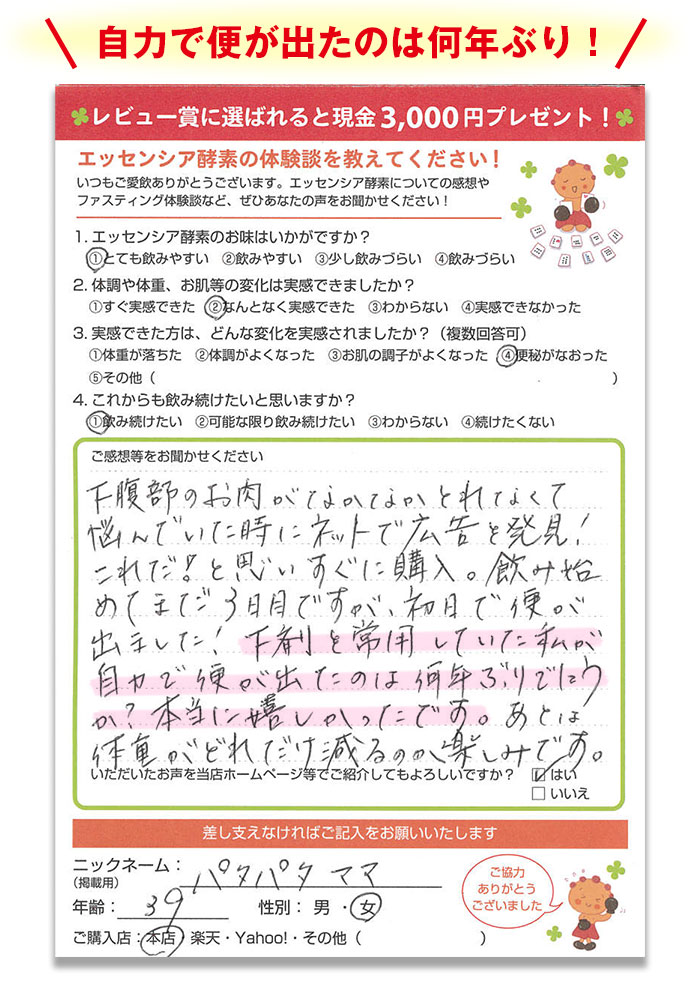 自力で便が出たのは何年ぶり！
レビュー賞に選ばれると現金3,000円プレゼント！
エッセンシア酵素の体験談を教えてください！
いつもご愛飲ありがとうございます。エッセンシア酵素についての感想や
ファスティング体験談など、ぜひあなたの声をお聞かせください！
1. エッセンシア酵素のお味はいかがですか？
①とても飲みやすい ②飲みやすい ③少し飲みづらい ④飲みづらい
2. 体調や体重、お肌等の変化は実感できましたか？
①すぐ実感できた ②なんとなく実感できた ③わからない ④実感できなかった
3. 実感できた方は、どんな変化を実感されましたか？（複数回答可）
①体重が落ちた ②体調がよくなった ③お肌の調子がよくなった ④便秘がなおった
⑤その他（ ）
4. これからも飲み続けたいと思いますか？
①飲み続けたい ②可能な限り飲み続けたい ③わからない ④続けたくない
ご感想等をお聞かせください
下腹部のお肉がなかなかとれなくて
悩んでいた時にネットで広告を発見！
これだ！と思いすぐに購入。飲み始
めてまだ3日目ですが、初日で便が
出ました！下剤を常用していた私が
自力で便が出たのは何年ぶりでしょう
か？本当に嬉しかったです。あとは
体重がどれだけ減るのか楽しみです。
いただいたお声を当店ホームページ等でご紹介してもよろしいですか？ ☑はい
□いいえ
差し支えなければご記入をお願いいたします
ニックネーム：パタパタママ
（掲載用）
年齢：39 性別：男・女
ご購入店：本店・楽天・Yahoo!・その他（ ）
ご協力
ありがとう
ございました